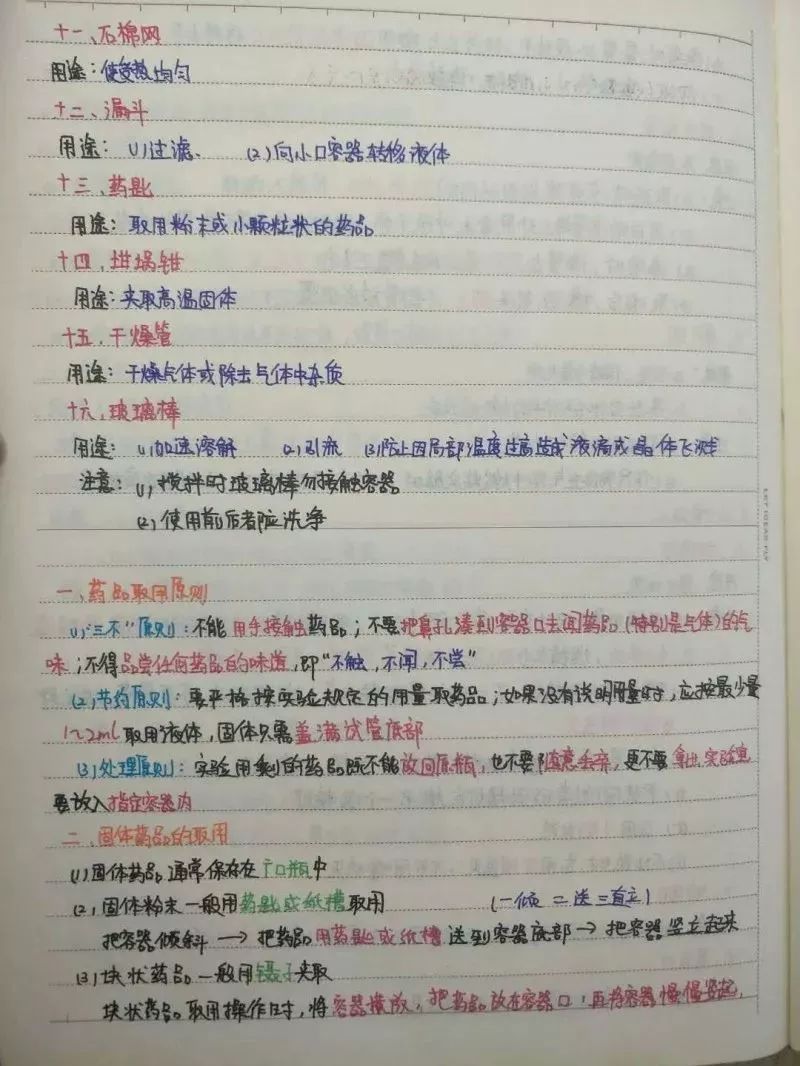 十一、石棉网
用途：使受热均匀
十二、漏斗
用途：(1)过滤、 (2)向小口容器转移液体
十三、药匙
用途：取用粉末或小颗粒状的药品
十四、坩埚钳
用途：夹取高温固体
十五、干燥管
用途：干燥气体或除去气体中杂质
十六、玻璃棒
用途：(1)加速溶解 (2)引流 (3)防止因局部温度过高造成液滴或晶体飞溅
注意：(1)搅拌时玻璃棒勿接触容器
(2)使用前后都应洗净
一、药品取用原则
(1)“三不”原则：不能用手接触药品；不要把鼻孔凑到容器口去闻药品(特别是气体)的气
味；不得品尝任何药品的味道，即“不触，不闻，不尝”
(2)节约原则：要严格按实验规定的用量取药品；如果没有说明用量时，应按最少量
1~2ml取用液体，固体只需盖满试管底部
(3)处理原则：实验用剩的药品既不能放回原瓶，也不要随意丢弃，更不要拿出实验室
要放入指定容器内
二、固体药品的取用
(1)固体药品通常保存在广口瓶中
(2)固体粉末一般用药匙或纸槽取用 (一倾 二送 三直立)
把容器倾斜→把药品用药匙或纸槽送到容器底部→把容器竖立起来
(3)块状药品一般用镊子夹取
块状药品取用操作时，将容器横放，把药品放在容器口，再将容器慢慢竖起，
LET IDEAS FLY